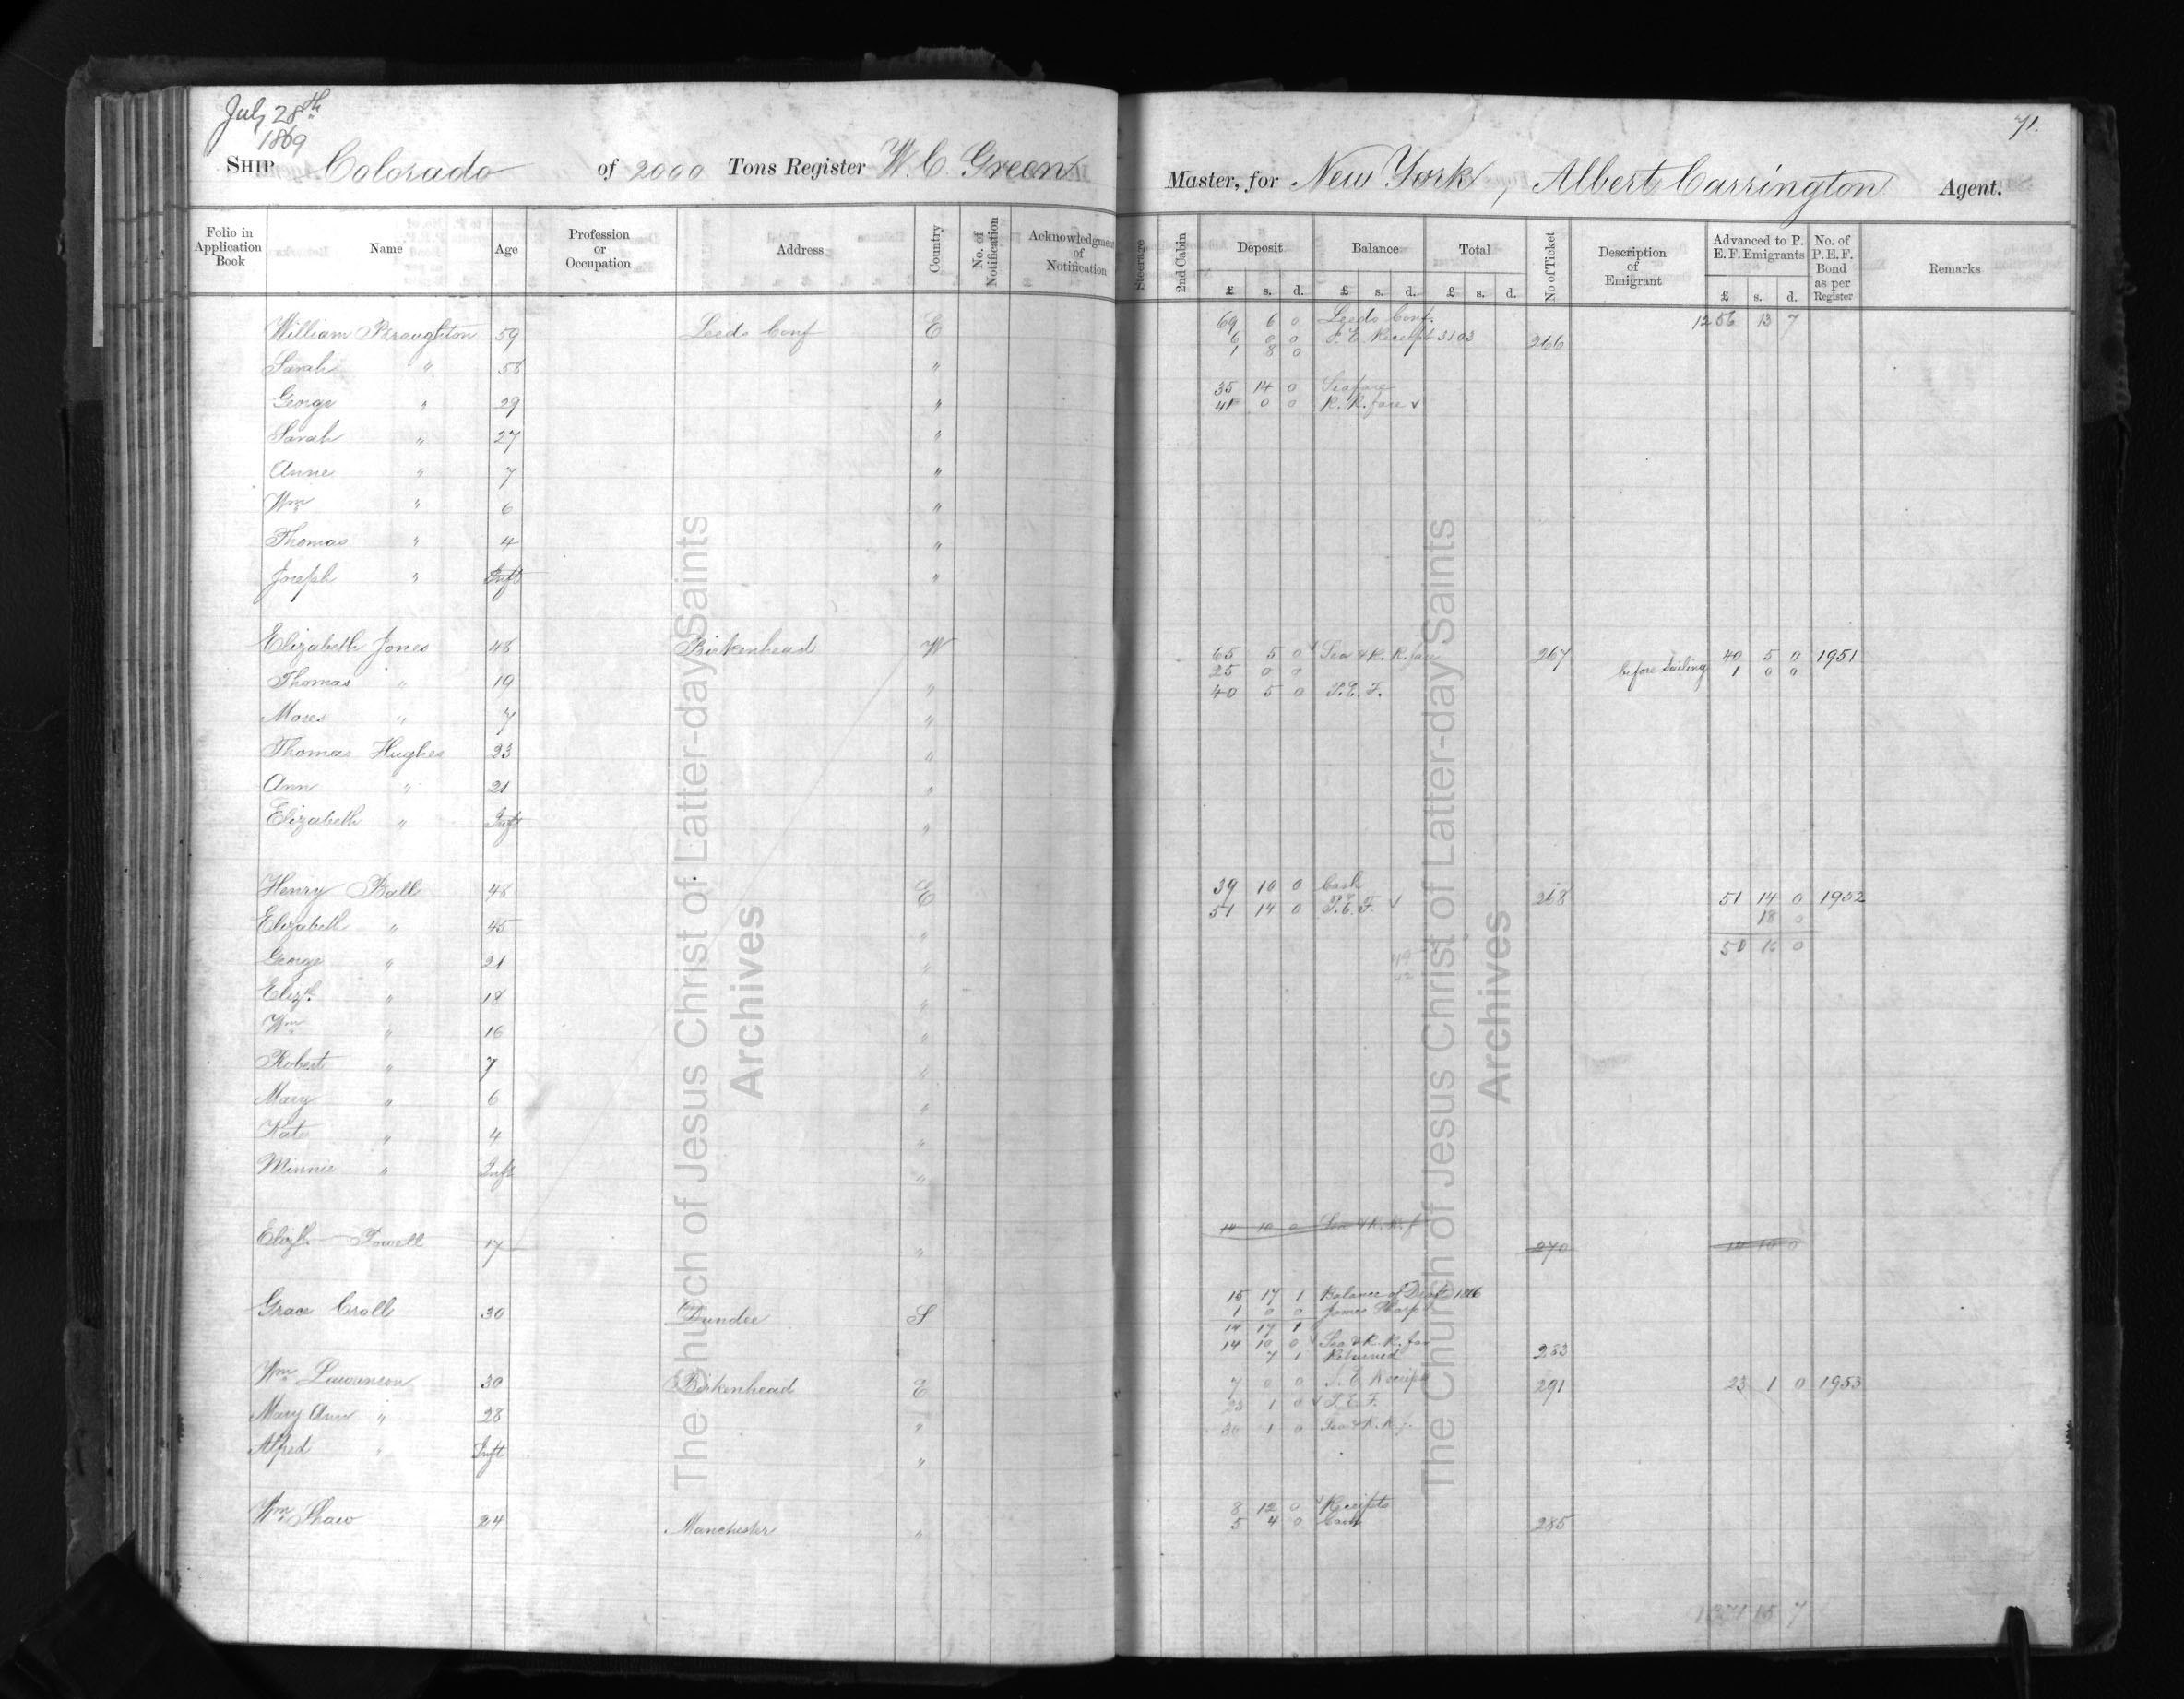 July 28th
1869
71.
SHIP Colorado of 2000 Tons Register W. C. Green Master, for New York, Albert Carrington Agent.
Folio in Application Book | Name | Age | Profession or Occupation | Address | Country | No. of Notification | Acknowledgment of Notification | Steerage | 2nd Cabin | Deposit £ s. d. | Balance £ s. d. | Total £ s. d. | No of Ticket | Description of Emigrant | Advanced to P. E. F. Emigrants £ s. d. | No. of P.E.F. Bond as per Register | Remarks
69 6 0 Leeds Conf. 1256 13 7
William Broughton 59 Leeds Conf E 6 0 0 P. E. Receipt 3103 266
1 8 0
Sarah " 58 "
35 14 0 Sea fare
George " 29 " 41 0 0 R. R. fare v
Sarah " 27 "
Anne " 7 "
Wm " 6 "
Thomas " 4 "
Joseph " Inft "
Elizabeth Jones 48 Birkenhead W 65 5 0 Sea & R. R. fare 267 40 5 0 1951
25 0 0 before Sailing 1 0 0
Thomas " 19 " 40 5 0 P. E. F.
Moses " 7 "
Thomas Hughes 23 "
Ann " 21 "
Elizabeth " Inft "
Henry Ball 48 E 39 10 0 Cash 268 51 14 0 1952
51 14 0 P. E. F. v 18 0
Elizabeth " 45 " 50 16 0
George " 21 "
Elizth " 18 "
Wm " 16 "
Robert " 7 "
Mary " 6 "
Kate " 4 "
Minnie " Inft "
14 10 0 Sea & R. R. f
Elizth Powell 17 " 270 14 10 0
15 17 1 Balance of Draft
Grace Croll 30 Dundee S 1 0 0 James Sharp
14 17 1
14 10 0 Sea & R. R. far 283
7 1 Returned
Wm Lawrenson 30 Birkenhead E 7 0 0 P. E. Receipt 291 23 1 0 1953
Mary Ann " 28 " 23 1 0 v P. E. F.
30 1 0 Sea & R. R. f.
Alfred " Inft "
8 12 0 v Receipts
Wm Shaw 24 Manchester " 5 4 0 Cash 285
15 7
The Church of Jesus Christ of Latter-day Saints
Archives
The Church of Jesus Christ of Latter-day Saints
Archives